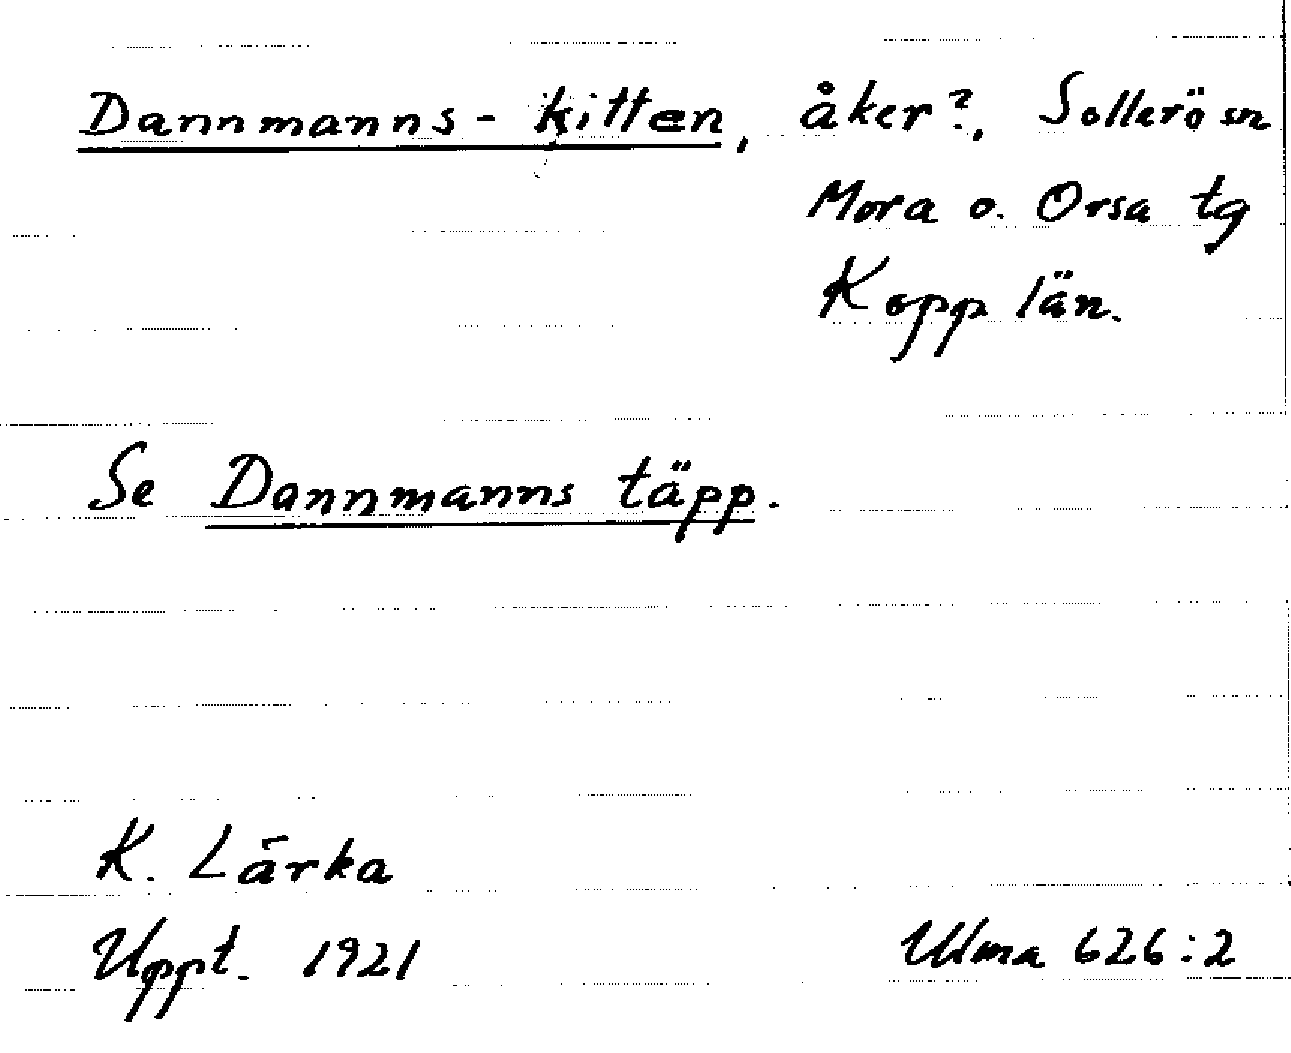 Dannmanns-kitten, åker?, Sollerö sn
Mora o. Orsa tg
Kopp län.
Se Dannmanns täpp.
K. Lärka
Uppt. 1921
Ulma 626:2